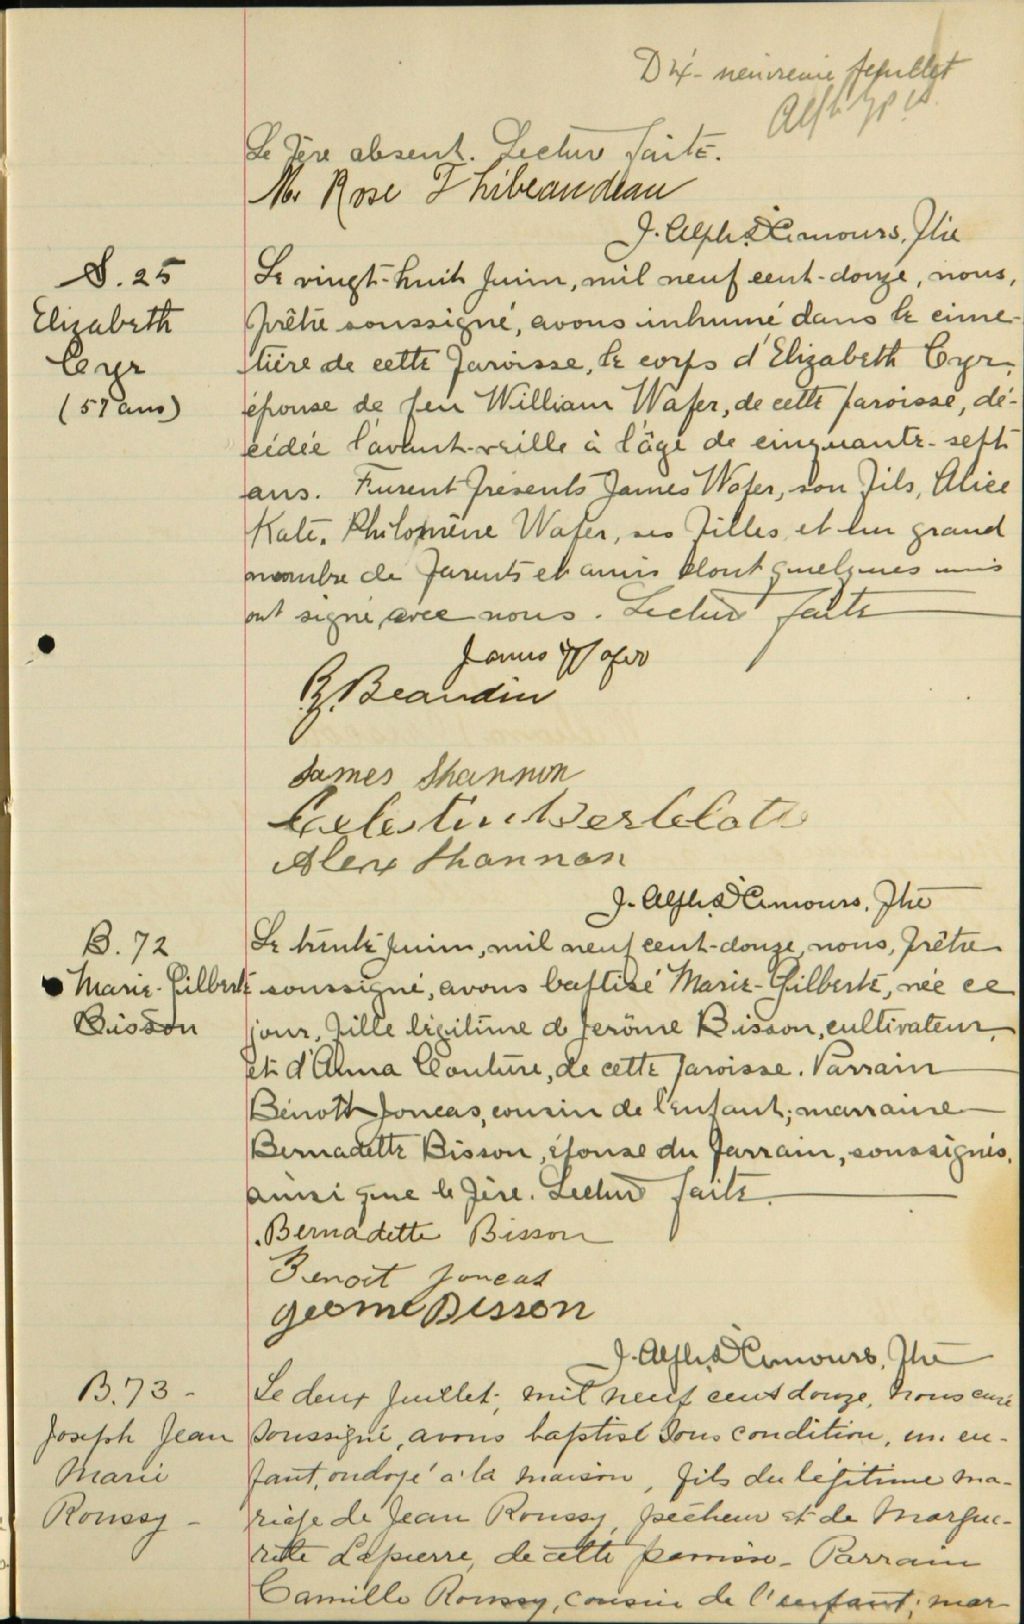 Dix-neuvième feuillet
Le père absent. Lecture faite.
M. Rose Thibeaudeau
J. Alph. D'Amours, Ptre
S. 25
Elizabeth
Cyr
(57 ans)
Le vingt-huit Juin, mil neuf cent-douze, nous,
prêtre soussigné, avons inhumé dans le cime-
tière de cette paroisse, le corps d'Elizabeth Cyr,
épouse de feu William Wafer, de cette paroisse, dé-
cédée l'avant-veille à l'âge de cinquante-sept
ans. Furent présents James Wafer, son fils, Alice
Kate, Philomène Wafer, ses filles, et un grand
nombre de parents et amis dont quelques-uns
ont signé avec nous. Lecture faite
James Wafer
Beaudin
James Shannon
Celestin
Alex Shannon
J. Alph. D'Amours, Ptre
B. 72
Marie-Gilberte
Bisson
Le trente Juin, mil neuf cent-douze, nous, prêtre
soussigné, avons baptisé Marie-Gilberte, née ce
jour, fille légitime de Jerôme Bisson, cultivateur,
et d'Anna Couture, de cette paroisse. Parrain
Bénoit Joncas, cousin de l'enfant; marraine
Bernadette Bisson, épouse du parrain, soussignés,
ainsi que le père. Lecture faite.
Bernadette Bisson
Benoit Joncas
Geome Bisson
J. Alph. D'Amours, Ptre
B. 73 -
Joseph Jean
Marie
Roussy -
Le deux Juillet, mil neuf cent douze, nous curé
soussigné, avons baptisé sous condition, un en-
fant, ondoyé à la maison, fils du légitime ma-
riage de Jean Roussy, pêcheur et de Margue-
rite Lapierre, de cette paroisse - Parrain
Camille Roussy, cousin de l'enfant; mar-